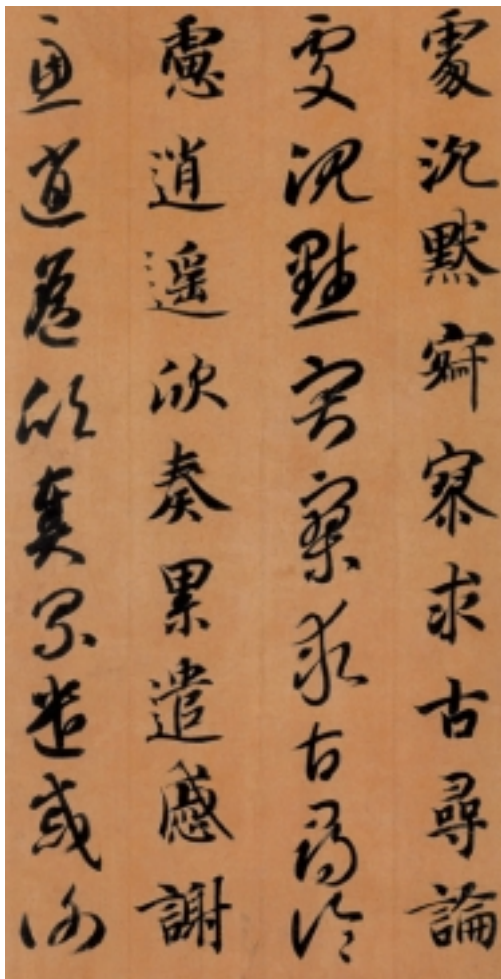 處沉默寂寥求古尋論
處沉默寂寥求古尋論
慮逍遥欣奏累遣慼謝
慮逍遥欣奏累遣慼謝